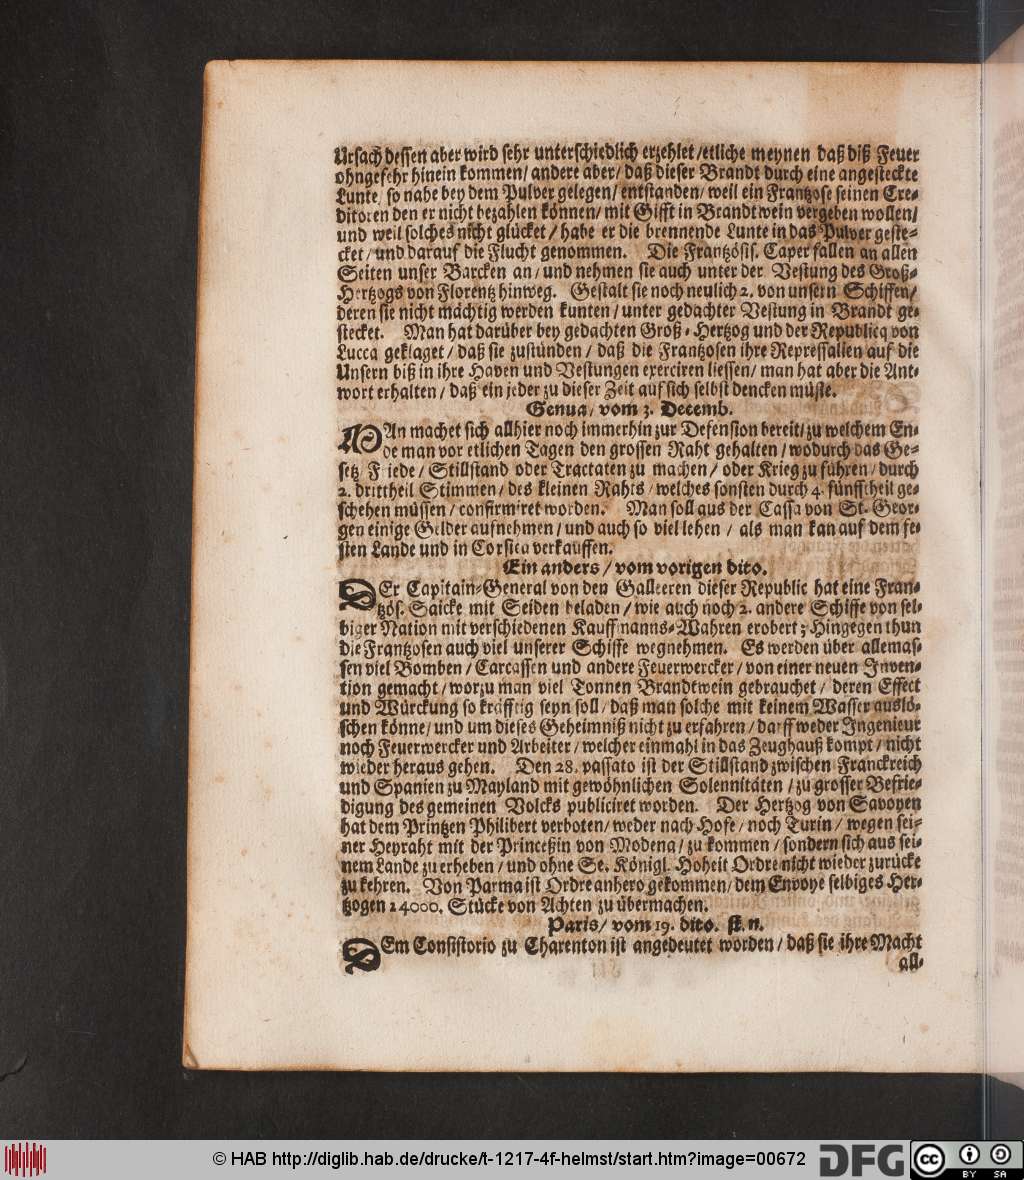 Ursach dessen aber wird sehr unterschiedlich erzehlet/etliche meynen daß diß Feuer
ohngefehr hinein kommen/ andere aber/ daß dieser Brandt durch eine angesteckte
Lunte/ so nahe bey dem Pulver gelegen/ entstanden/ weil ein Frantzose seinen Cre-
ditoren den er nicht bezahlen können/ mit Gifft in Brandtwein vergeben wollen/
und weil solches nicht glücket/ habe er die brennende Lunte in das Pulver geste-
cket/ und darauf die Flucht genommen. Die Frantzösis. Caper fallen an allen
Seiten unser Barcken an/ und nehmen sie auch unter der Vestung des Groß-
Hertzogs von Florentz hinweg. Gestalt sie noch neulich 2. von unsern Schiffen/
deren sie nicht mächtig werden kunten/ unter gedachter Vestung in Brandt ge-
stecket. Man hat darüber bey gedachten Groß-Hertzog und der Republica von
Lucca geklaget/ daß sie zustünden/ daß die Frantzosen ihre Repressalien auf die
Unsern biß in ihre Haven und Vestungen exerciren liessen/ man hat aber die Ant-
wort erhalten/ daß ein jeder zu dieser Zeit auf sich selbst dencken müste.
Genua/ vom 3. Decemb.
MAn machet sich allhier noch immerhin zur Defension bereit/ zu welchem En-
de man vor etlichen Tagen den grossen Raht gehalten/ wodurch das Ge-
setz Friede/ Stillstand oder Tractaten zu machen/ oder Krieg zu führen/ durch
2. drittheil Stimmen/ des kleinen Rahts/ welches sonsten durch 4. fünfftheil ge-
schehen müssen/ confirmiret worden. Man soll aus der Cassa von St. Geor-
gen einige Gelder aufnehmen/ und auch so viel lehen/ als man kan auf dem fe-
sten Lande und in Corsica verkauffen.
Ein anders/ vom vorigen dito.
DEr Capitain-General von den Galleeren dieser Republic hat eine Fran-
tzös. Saicke mit Seiden beladen/ wie auch noch 2. andere Schiffe von sel-
biger Nation mit verschiedenen Kauffmanns-Wahren erobert; Hingegen thun
die Frantzosen auch viel unserer Schiffe wegnehmen. Es werden über allemas-
sen viel Bomben/ Carcassen und andere Feuerwercker/ von einer neuen Inven-
tion gemacht/ worzu man viel Tonnen Brandtwein gebrauchet/ deren Effect
und Würckung so kräfftig seyn soll/ daß man solche mit keinem Wasser auslö-
schen könne/ und um dieses Geheimniß nicht zu erfahren/ darff weder Ingenieur
noch Feuerwercker und Arbeiter/ welcher einmahl in das Zeughauß kompt/ nicht
wieder heraus gehen. Den 28. passato ist der Stillstand zwischen Franckreich
und Spanien zu Mayland mit gewöhnlichen Solennitäten/ zu grosser Befrie-
digung des gemeinen Volcks publiciret worden. Der Hertzog von Savoyen
hat dem Printzen Philibert verboten/ weder nach Hofe/ noch Turin/ wegen sei-
ner Heyraht mit der Princeßin von Modena/ zu kommen/ sondern sich aus sei-
nem Lande zu erheben/ und ohne Se. Königl. Hoheit Ordre nicht wieder zurücke
zu kehren. Von Parma ist Ordre anhero gekommen/ dem Envoye selbiges Her-
tzogen 24000. Stücke von Achten zu übermachen.
Paris/ vom 19. dito. st. n.
DEm Consistorio zu Charenton ist angedeutet worden/ daß sie ihre Macht
all-
© HAB http://diglib.hab.de/drucke/t-1217-4f-helmst/start.htm?image=00672
DFG
cc
BY SA